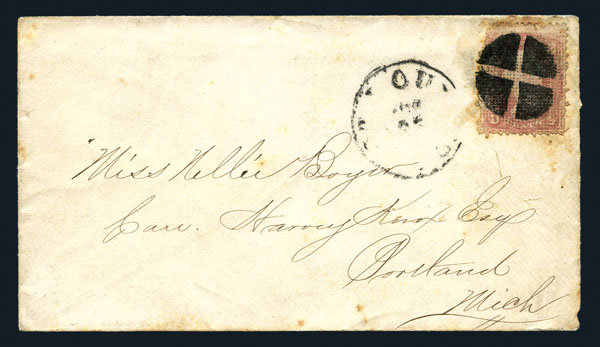 OU
Miss Nellie Boyer
Care. Harvey Knox Esq
Portland
Mich